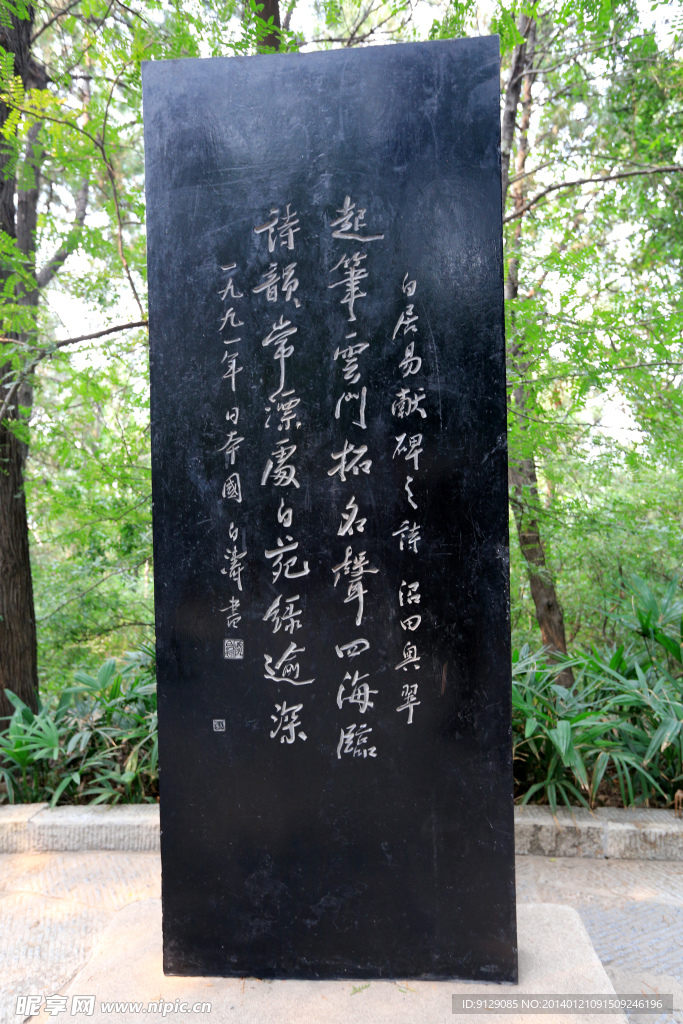 白居易献碑之诗 沼田奥翠
起筆雲門拓名聲四海臨
詩韻常漂處白苑緑逾深
一九九一年 日本國 白濤書
昵享网 www.nipic.cn
ID:9129085 NO:20140121091509246196